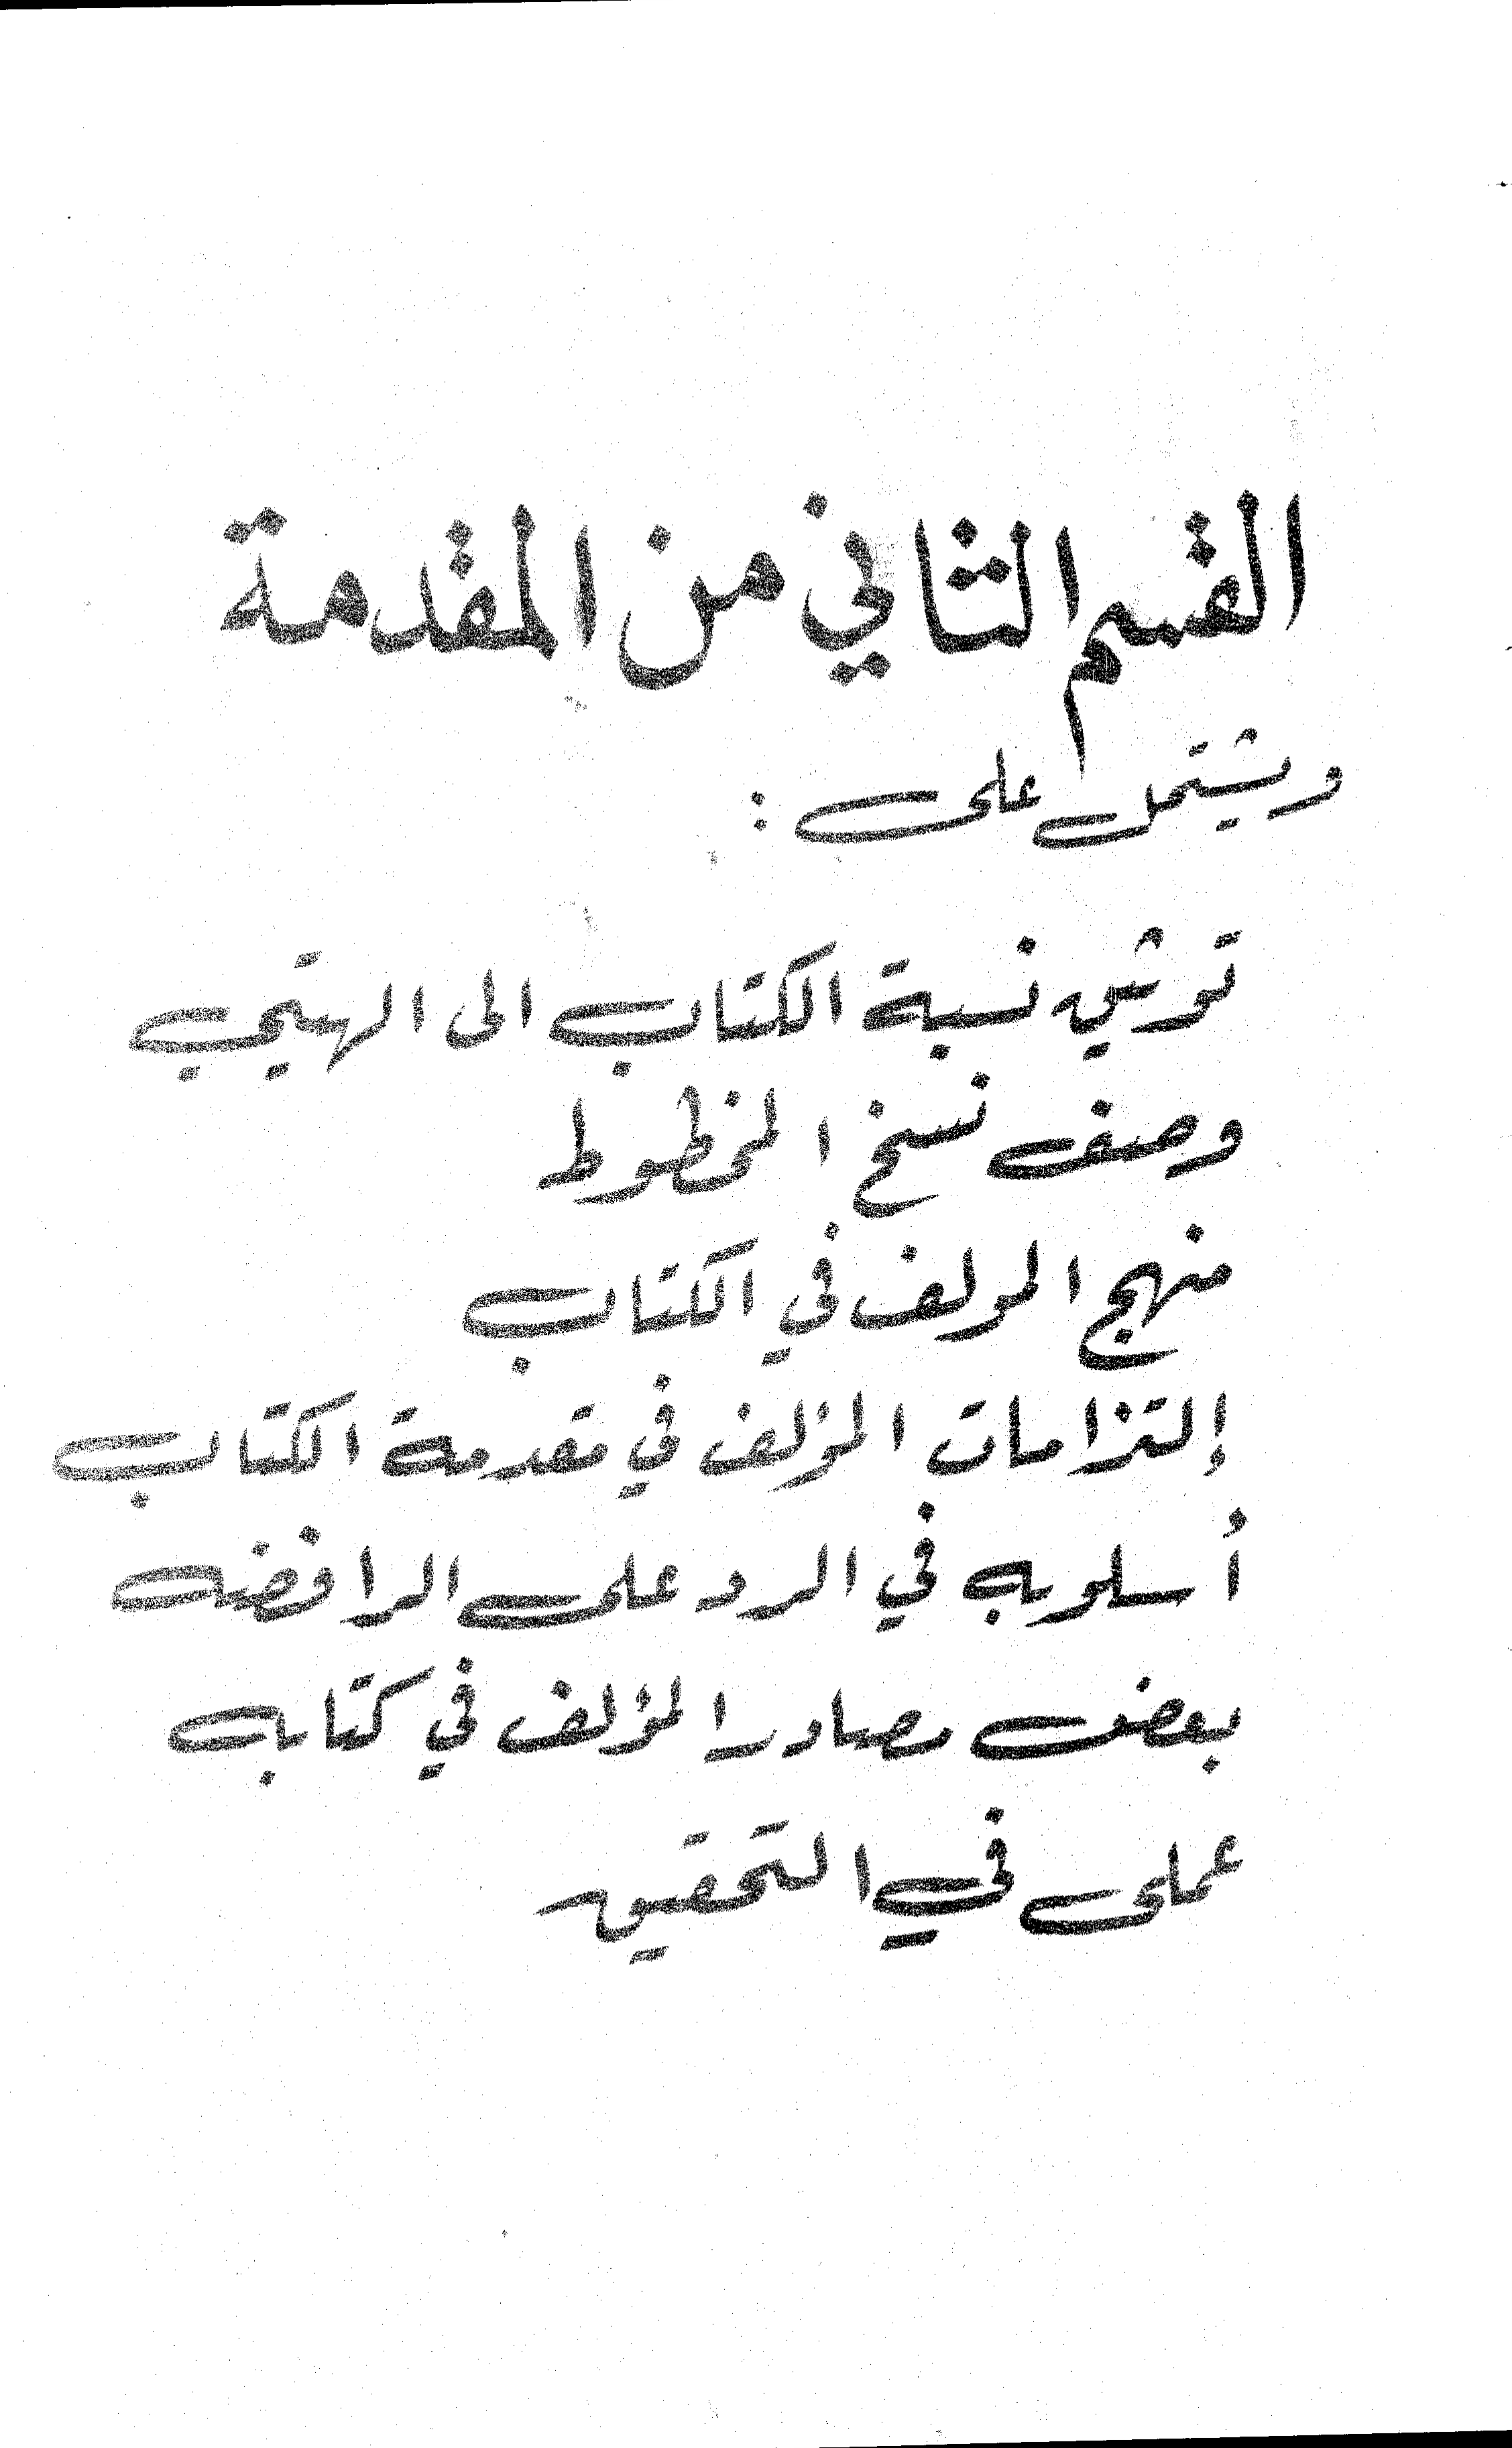 القسم الثاني من المقدمة
ويشتمل على :
توثيق نسبة الكتاب الى الهيتمي
وصف نسخ المخطوط
منهج المولف في الكتاب
إلتزامات المؤلف في مقدمة الكتاب
أسلوبه في الرد على الرافضه
بعض مصادر المؤلف في كتابه
عملى في التحقيق